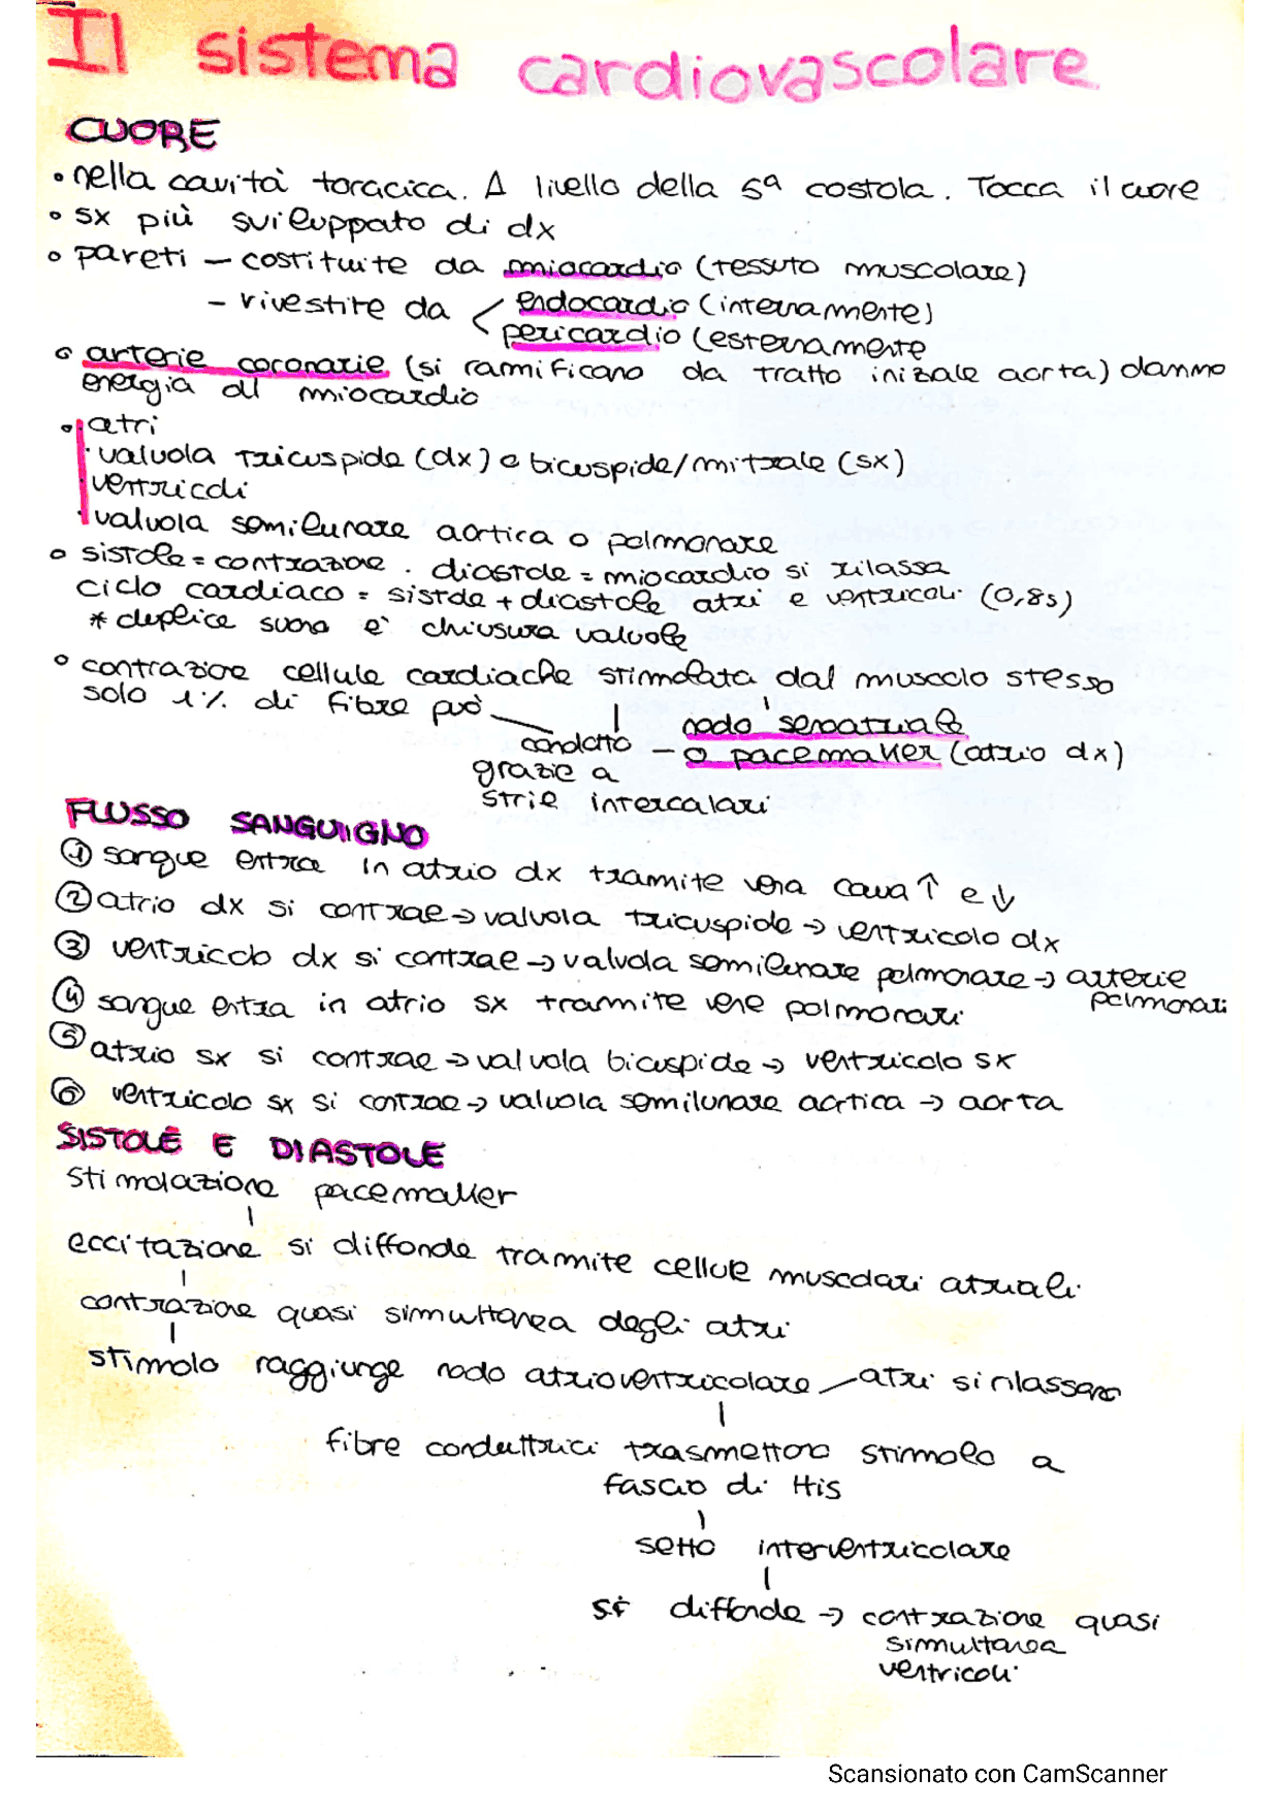 Il sistema cardiovascolare
CUORE
• nella cavità toracica. A livello della 5ª costola. Tocca il cuore
• sx più sviluppato di dx
• pareti – costituite da miocardio (tessuto muscolare)
– rivestite da < endocardio (internamente)
pericardio (esternamente
• arterie coronarie (si ramificano da tratto inizale aorta) danno
energia al miocardio
• atri
valvola tricuspide (dx) e bicuspide/mitrale (sx)
ventricoli
valvola semilunare aortica o polmonare
• sistole = contrazione . diastole = miocardio si rilassa
ciclo cardiaco = sistole + diastole atri e ventricoli (0,8s)
* duplice suono è chiusura valvole
• contrazione cellule cardiache stimolata dal muscolo stesso
solo 1% di fibre può
nodo senoatriale
condotto – o pacemaker (atrio dx)
grazie a
strie intercalari
FLUSSO SANGUIGNO
① sangue entra in atrio dx tramite vena cava ↑ e ↓
② atrio dx si contrae → valvola tricuspide → ventricolo dx
③ ventricolo dx si contrae → valvola semilunare polmonare → arterie
polmonari
④ sangue entra in atrio sx tramite vene polmonari
⑤ atrio sx si contrae → valvola bicuspide → ventricolo sx
⑥ ventricolo sx si contrae → valvola semilunare aortica → aorta
SISTOLE E DIASTOLE
stimolazione pacemaker
eccitazione si diffonde tramite cellule muscolari atriali
contrazione quasi simultanea degli atri
stimolo raggiunge nodo atrioventricolare – atri si rilassano
fibre conduttrici trasmettono stimolo a
fascio di His
setto interventricolare
si diffonde → contrazione quasi
simultanea
ventricoli
Scansionato con CamScanner